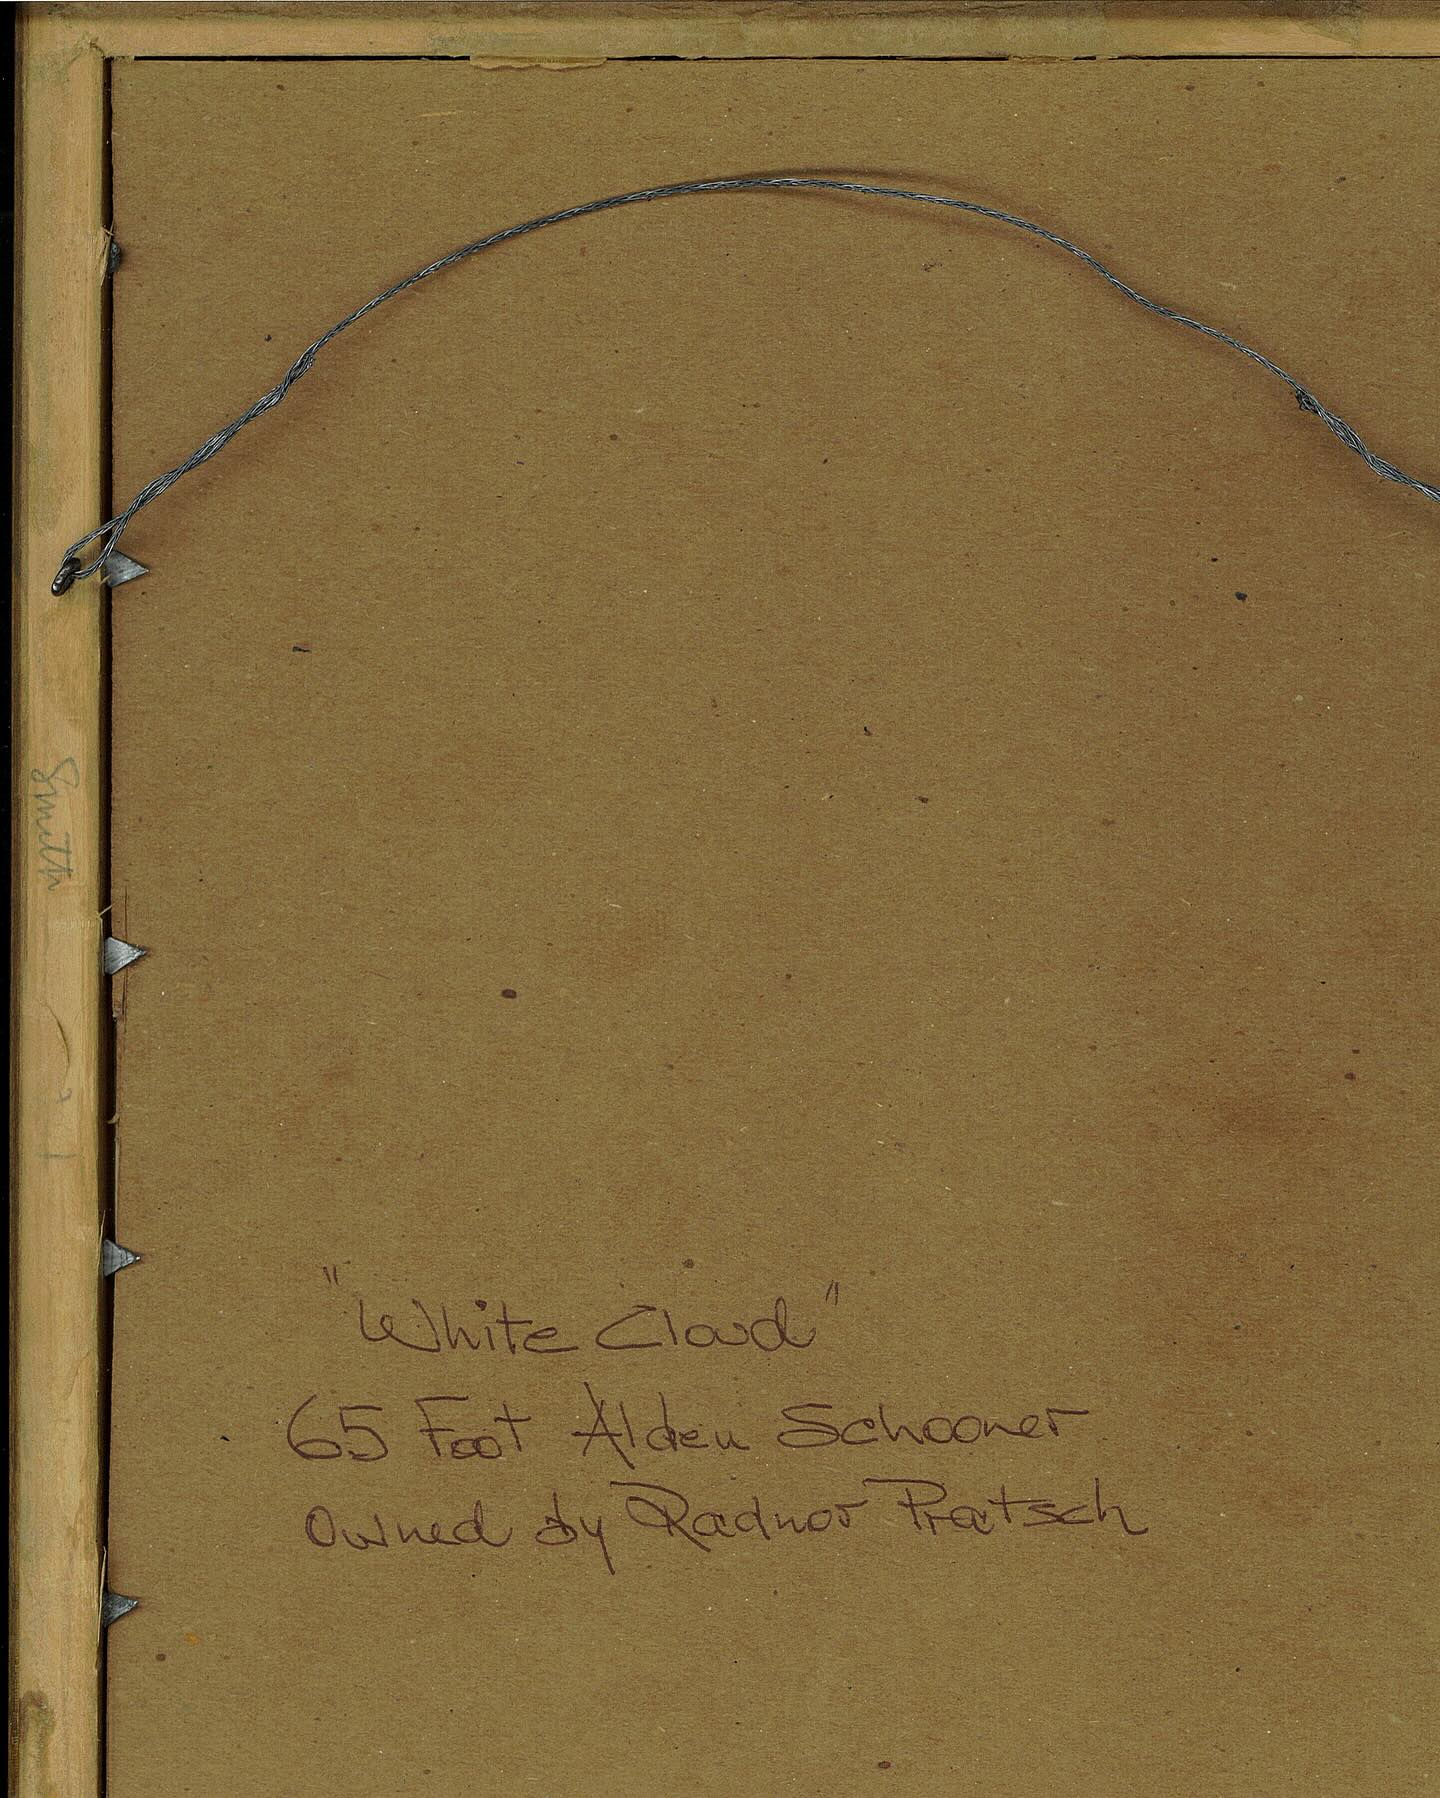 Smith
"White Cloud"
65 Foot Alden Schooner
Owned by Radnor Pratsch